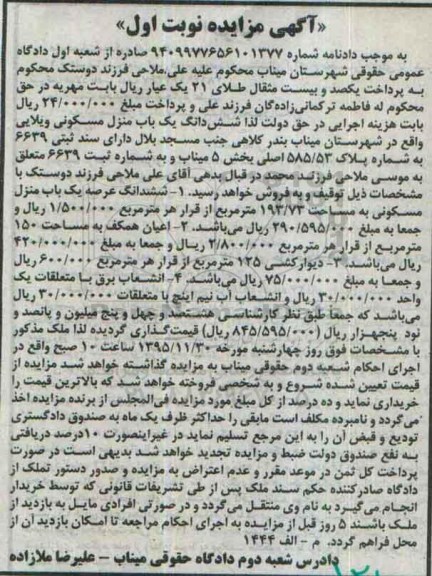 «آگهی مزایده نوبت اول»
به موجب دادنامه شماره ۹۴۰۹۹۷۷۶۵۶۱۰۱۳۷۷ صادره از شعبه اول دادگاه
عمومی حقوقی شهرستان میناب محکوم علیه علی ملاحی فرزند دوستک محکوم
به پرداخت یکصد و بیست مثقال طلای ۲۱ یک عیار ریال بابت مهریه در حق
محکوم له فاطمه ترکمانی‌زادگان فرزند علی و پرداخت مبلغ ۲۴/۰۰۰/۰۰۰ ریال
بابت هزینه اجرایی در حق دولت لذا شش‌دانگ یک باب منزل مسکونی ویلایی
واقع در شهرستان میناب بندر کلاهی جنب مسجد بلال دارای سند ثبتی ۶۶۳۹
به شماره پلاک ۵۸۵/۵۳ اصلی بخش ۵ میناب و به شماره ثبت ۶۶۳۹ متعلق
به موسی ملاحی فرزند محمد در قبال بدهی آقای علی ملاحی فرزند دوستک با
مشخصات ذیل توقیف و به فروش خواهد رسید. ۱- ششدانگ عرصه یک باب منزل
مسکونی به مساحت ۱۹۳/۷۳ مترمربع از قرار هر مترمربع ۱/۵۰۰/۰۰۰ ریال و
جمعا به مبلغ ۲۹۰/۵۹۵/۰۰۰ ریال می‌باشد. ۲- اعیان همکف به مساحت ۱۵۰
مترمربع از قرار هر مترمربع ۲/۸۰۰/۰۰۰ ریال و جمعا به مبلغ ۴۲۰/۰۰۰/۰۰۰
ریال می‌باشد. ۳- دیوارکشی ۱۲۵ مترمربع از قرار هر مترمربع ۶۰۰/۰۰۰ ریال
و جمعا به مبلغ ۷۵/۰۰۰/۰۰۰ ریال می‌باشد. ۴- انشعاب برق با متعلقات یک
واحد ۳۰/۰۰۰/۰۰۰ ریال و انشعاب آب نیم اینچ با متعلقات ۳۰/۰۰۰/۰۰۰ ریال
می‌باشد که جمعا طبق نظر کارشناسی هشتصد و چهل و پنج میلیون و پانصد و
نود پنجهزار ریال (۸۴۵/۵۹۵/۰۰۰ ریال) قیمت‌گذاری گردیده لذا ملک مذکور
با مشخصات فوق روز چهارشنبه مورخه ۱۳۹۵/۱۱/۳۰ ساعت ۱۰ صبح واقع در
اجرای احکام شعبه دوم حقوقی میناب به مزایده گذاشته خواهد شد مزایده از
قیمت تعیین شده شروع و به شخصی فروخته خواهد شد که بالاترین قیمت را
خریداری نماید و ده درصد از کل مبلغ مورد مزایده فی‌المجلس از برنده مزایده اخذ
می‌گردد و نامبرده مکلف است مابقی را حداکثر ظرف یک ماه به صندوق دادگستری
تودیع و قبض آن را به این مرجع تسلیم نماید در غیراینصورت ۱۰درصد دریافتی
به نفع صندوق دولت ضبط و مزایده تجدید خواهد شد بدیهی است در صورت
پرداخت کل ثمن در موعد مقرر و عدم اعتراض به مزایده و صدور دستور تملک از
دادگاه صادرکننده حکم سند ملک پس از طی تشریفات قانونی که توسط خریدار
انجام می‌گیرد به نام وی منتقل می‌گردد و در صورتی افرادی مایل به بازدید از
ملک باشند ۵ روز قبل از مزایده به اجرای احکام مراجعه تا امکان بازدید آن از
محل فراهم گردد. م - الف ۱۴۴۴
دادرس شعبه دوم دادگاه حقوقی میناب – علیرضا ملازاده